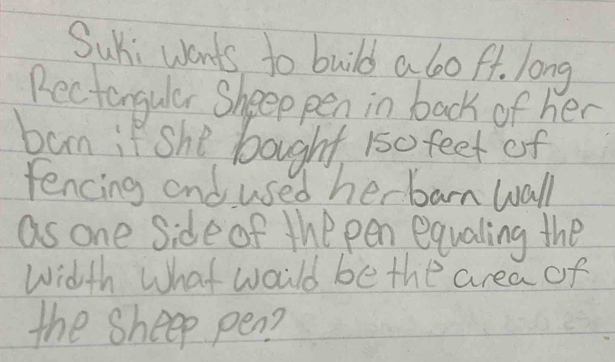 Suki wants to build a 60 ft. long
Rectangular Sheep pen in back of her
barn if she bought 150 feet of
fencing and used her barn wall
as one side of the pen equaling the
width what would be the area of
the sheep pen?